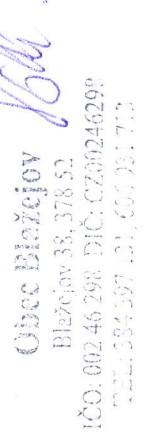 Obec Blažejov
Blažejov 38, 378 52
IČO: 002 46 298 DIČ: CZ00246298
384 397 606